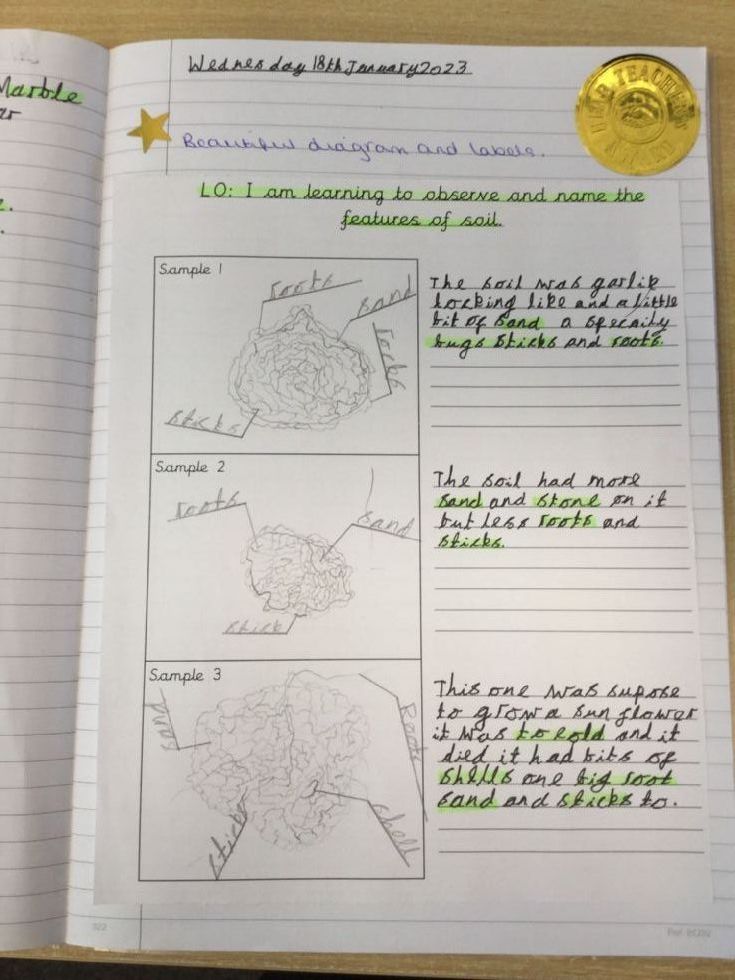 Marble
Wednesday 18th January 2023
TEACHER
Beautiful diagram and labels.
LO: I am learning to observe and name the
features of soil.
Sample 1
roots
sand
rocks
sticks
The soil was garlik
looking like and a little
bit of sand a specaily
bugs sticks and roots.
Sample 2
roots
sand
stick
The soil had more
sand and stone on it
but less roots and
sticks.
Sample 3
sand
Root
shell
sticks
This one was supose
to grow a sun flower
it was to cold and it
died it had bits of
shells one big root
sand and sticks to.
322